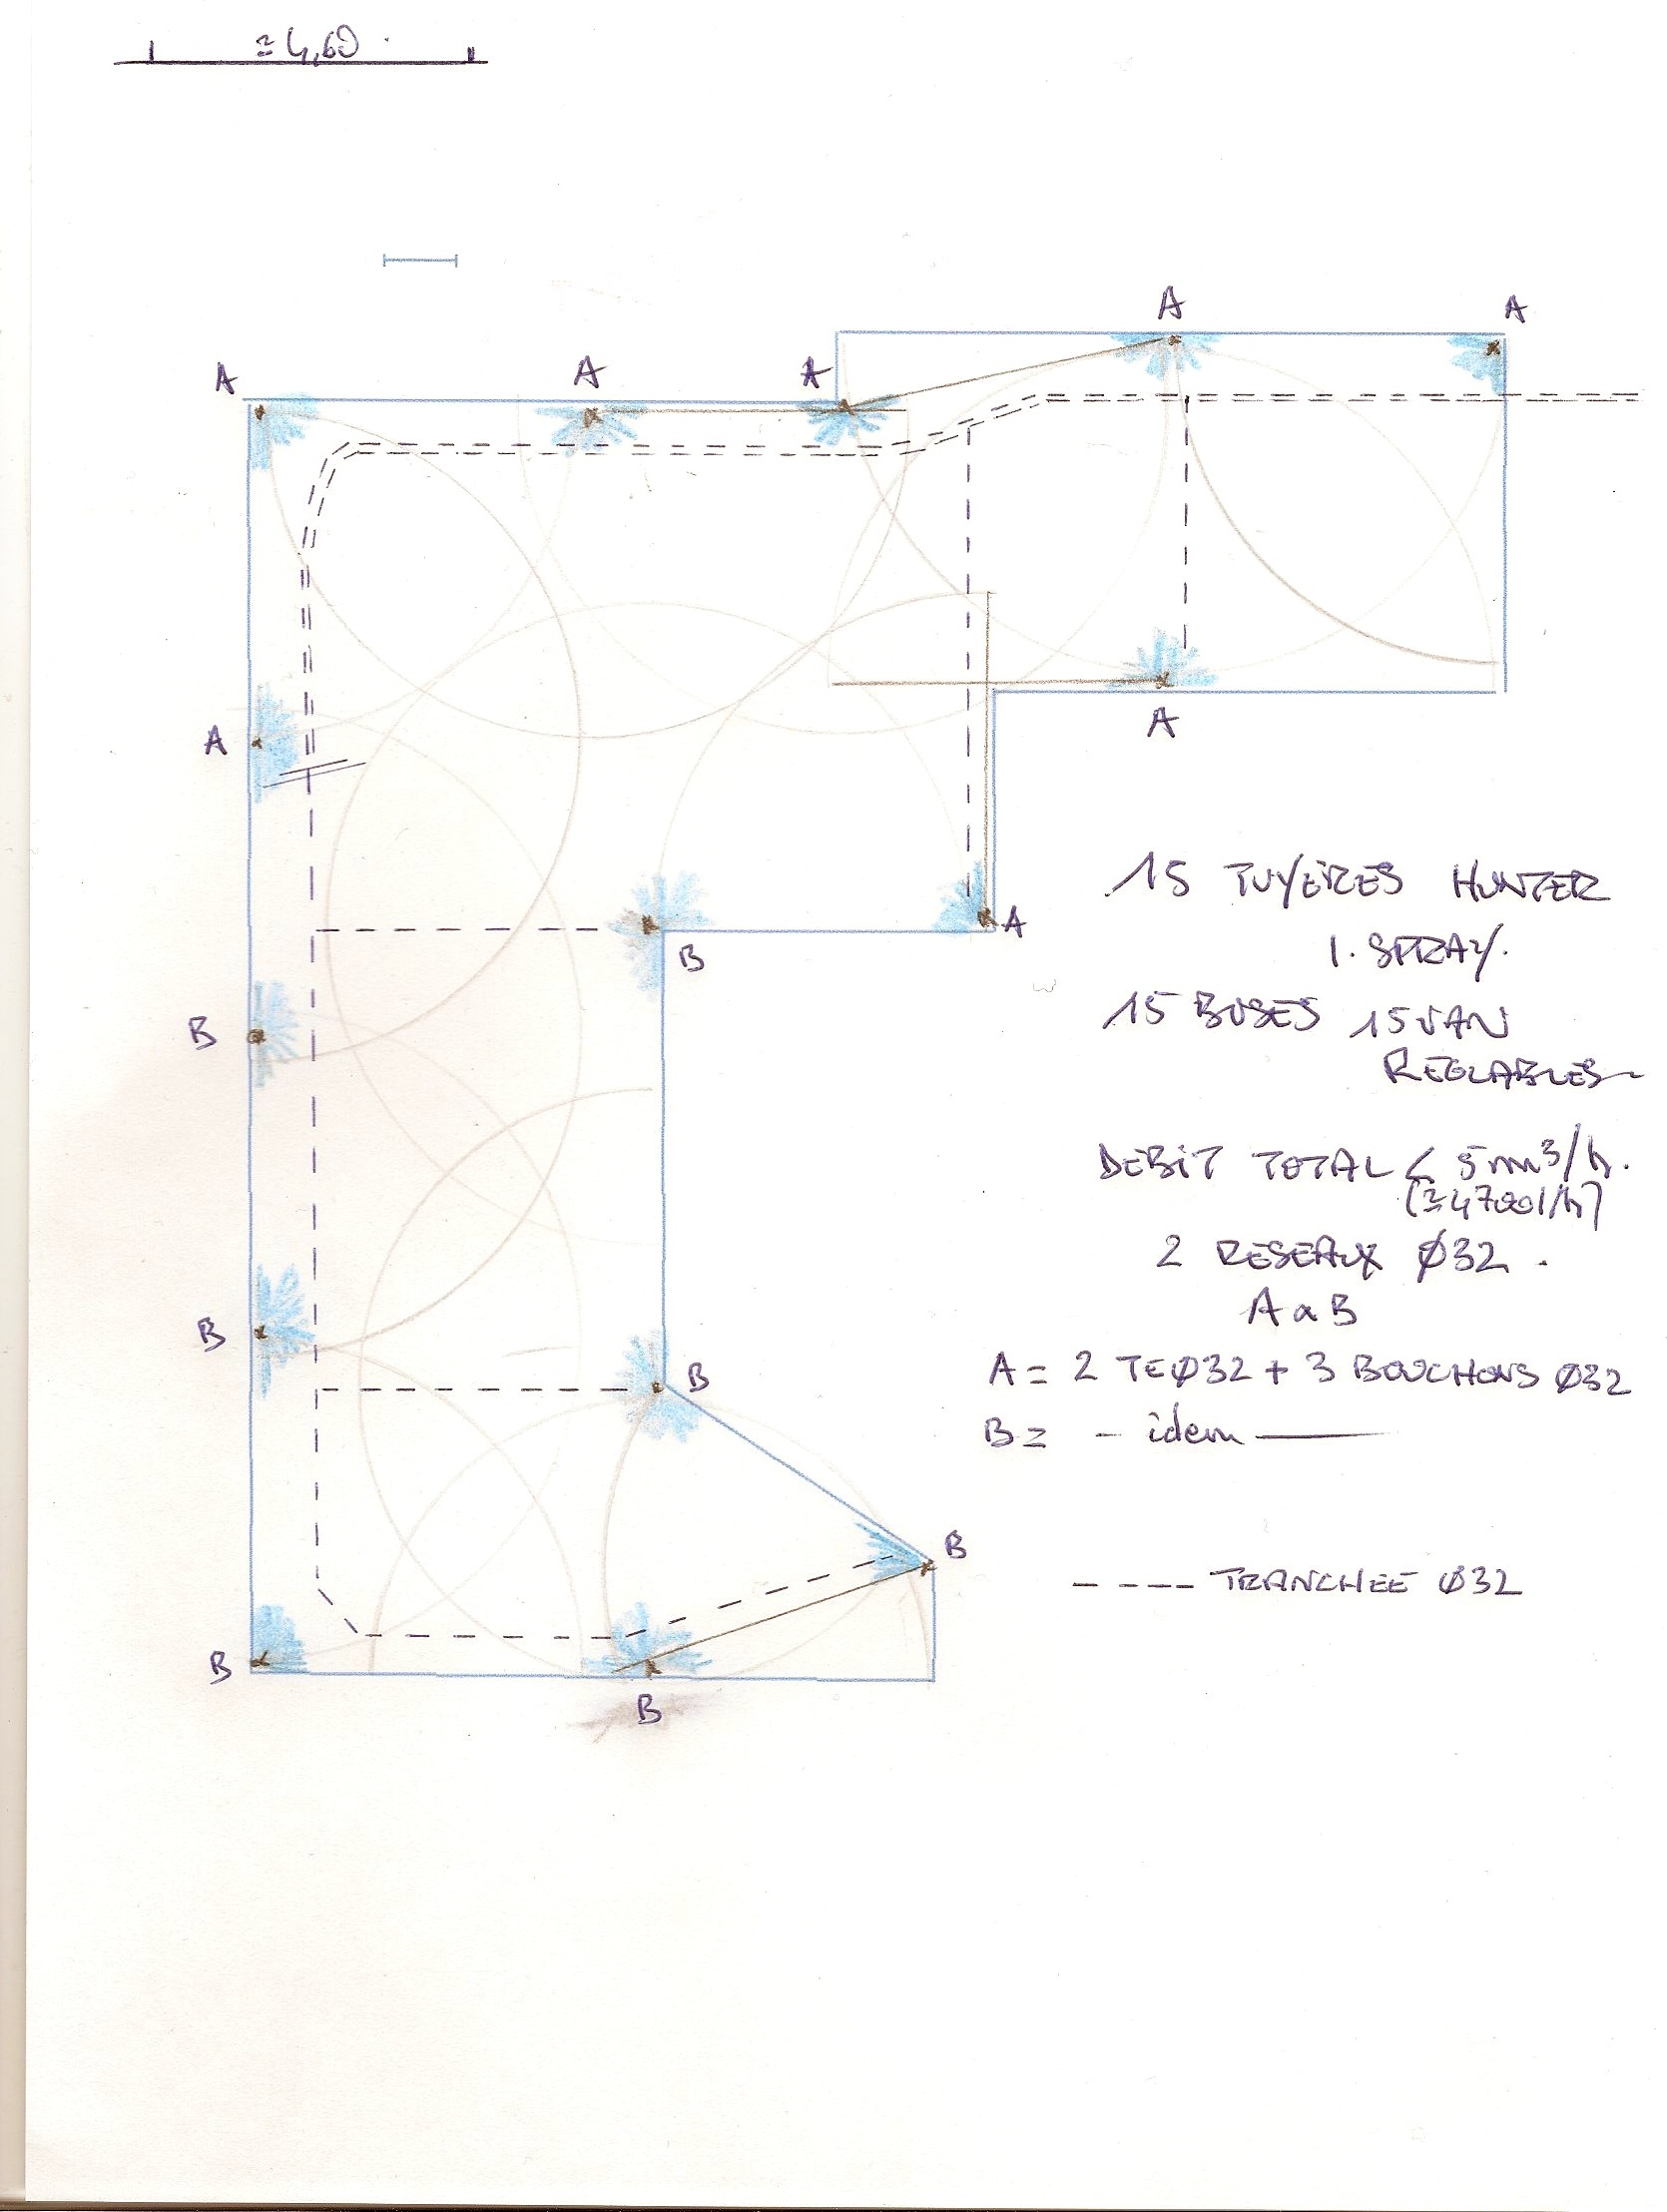 ≃ 4,60
A
A
A
A
A
A
A
A
B
B
B
B
B
B
B
15 TUYERES HUNTER
I. SPRAY.
15 BUSES 15 VAN
REGLABLES
DEBIT TOTAL < 5 m³/h.
(≃ 4700 l/h)
2 RESEAUX Ø32.
A a B
A = 2 TE Ø32 + 3 BOUCHONS Ø32
B = - idem ———
- - - - TRANCHEE Ø32